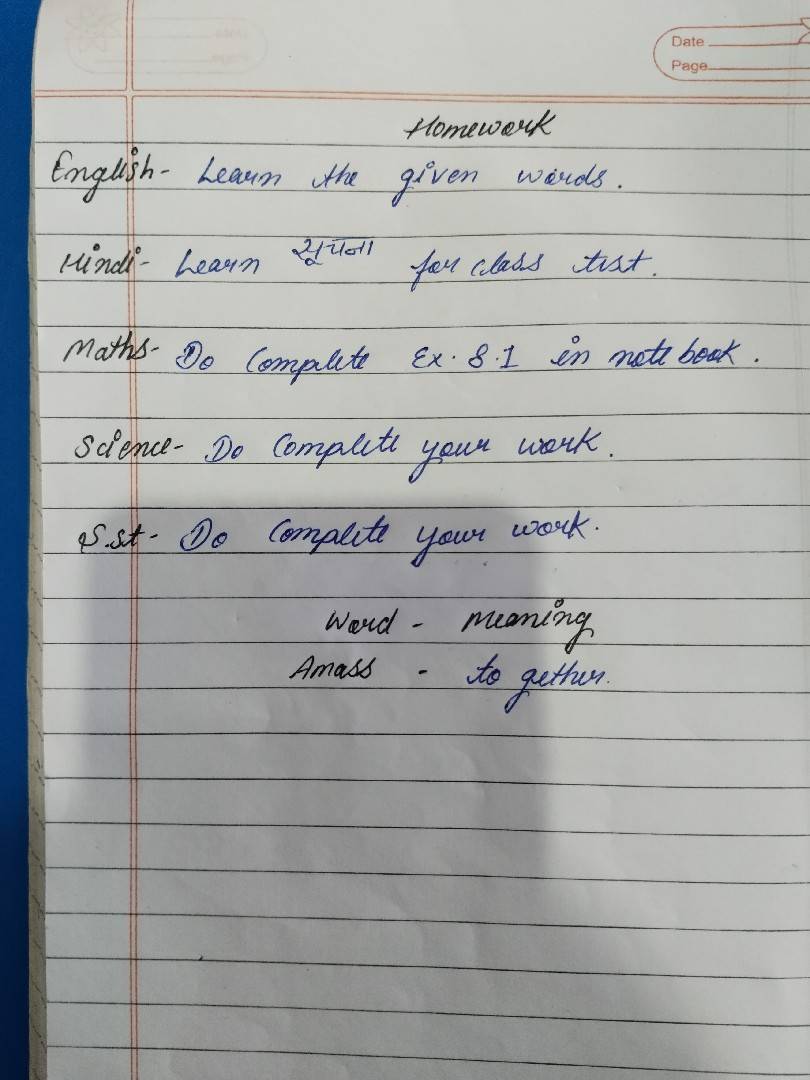 Date
Page
Homework
English- Learn the given words.
Hindi- Learn सूचना for class test.
Maths- Do Complete Ex. 8.1 in note book.
Science- Do Complete your work.
S.st- Do Complete your work.
Word - Meaning
Amass - to gether.